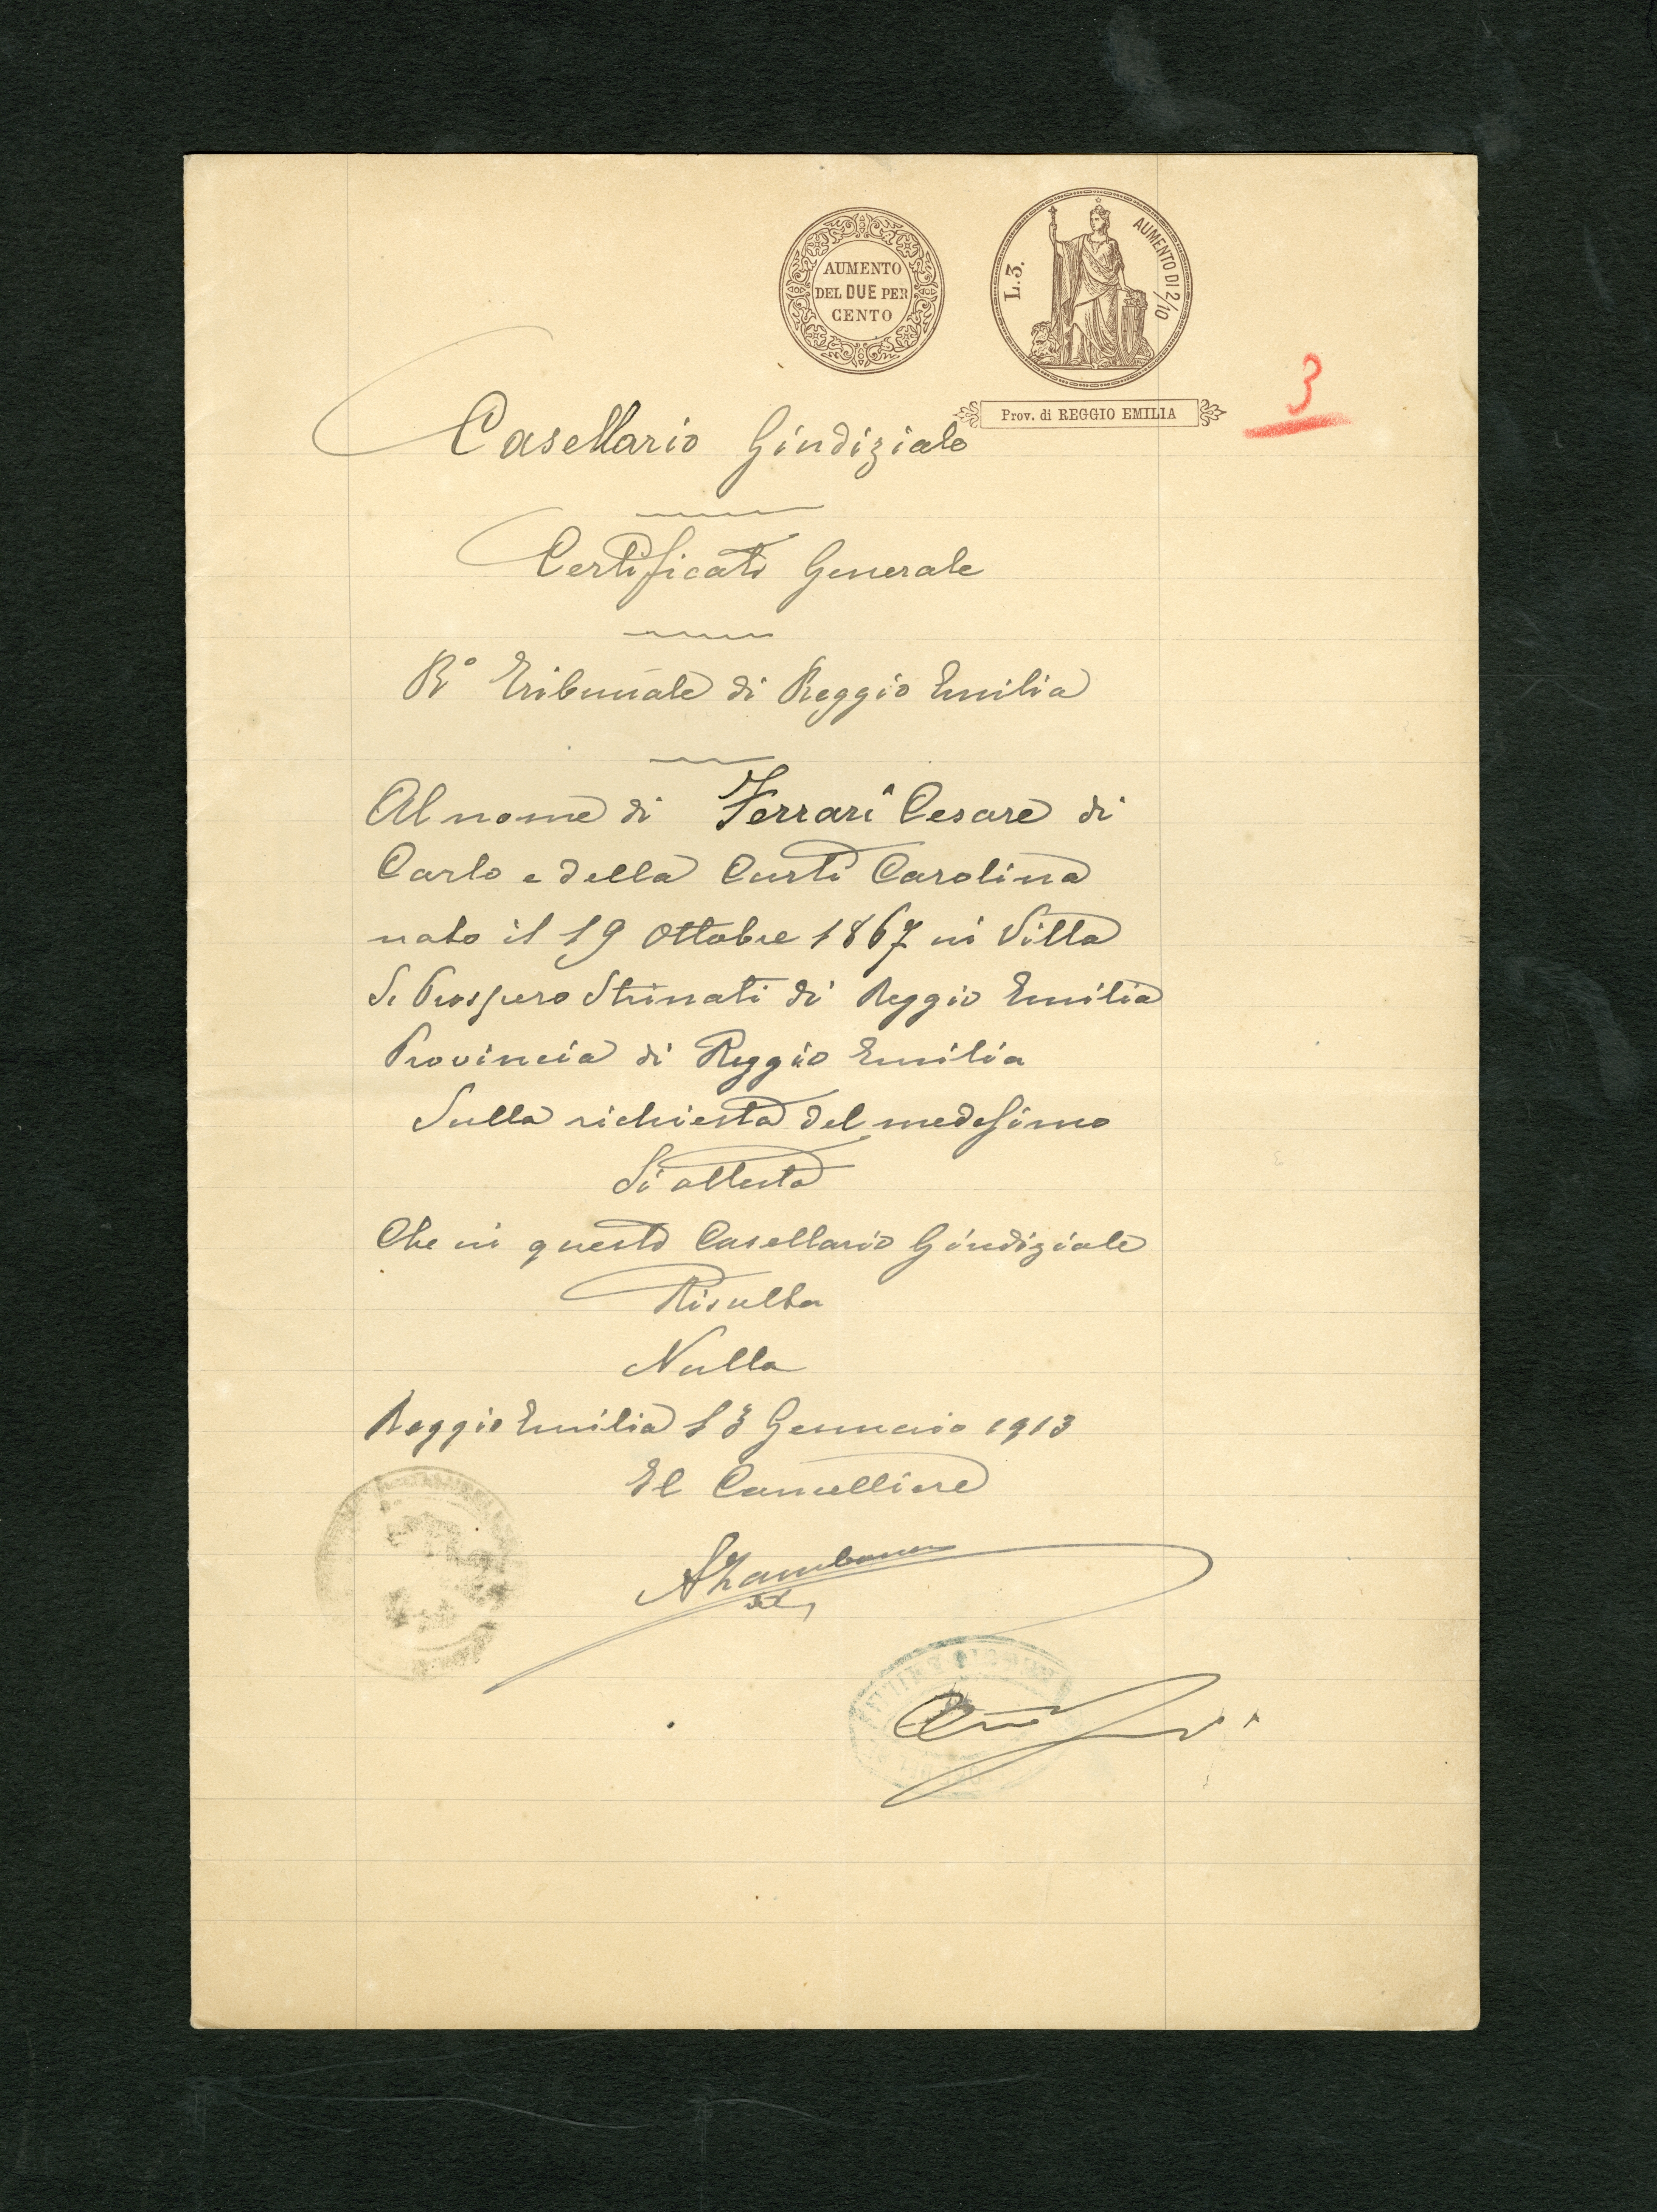 AUMENTO
DEL DUE PER
CENTO
L. 3.
AUMENTO DI 2/10
Prov. di REGGIO EMILIA
3
Casellario Giudiziale
Certificato Generale
R° Tribunale di Reggio Emilia
Al nome di Ferrari Cesare di
Carlo e della Curti Carolina
nato il 19 Ottobre 1867 in Villa
S. Prospero Strinati di Reggio Emilia
Provincia di Reggio Emilia
Sulla richiesta del medesimo
Si attesta
Che in questo Casellario Giudiziale
Risulta
Nulla
Reggio Emilia 13 Gennaio 1913
Il Cancelliere